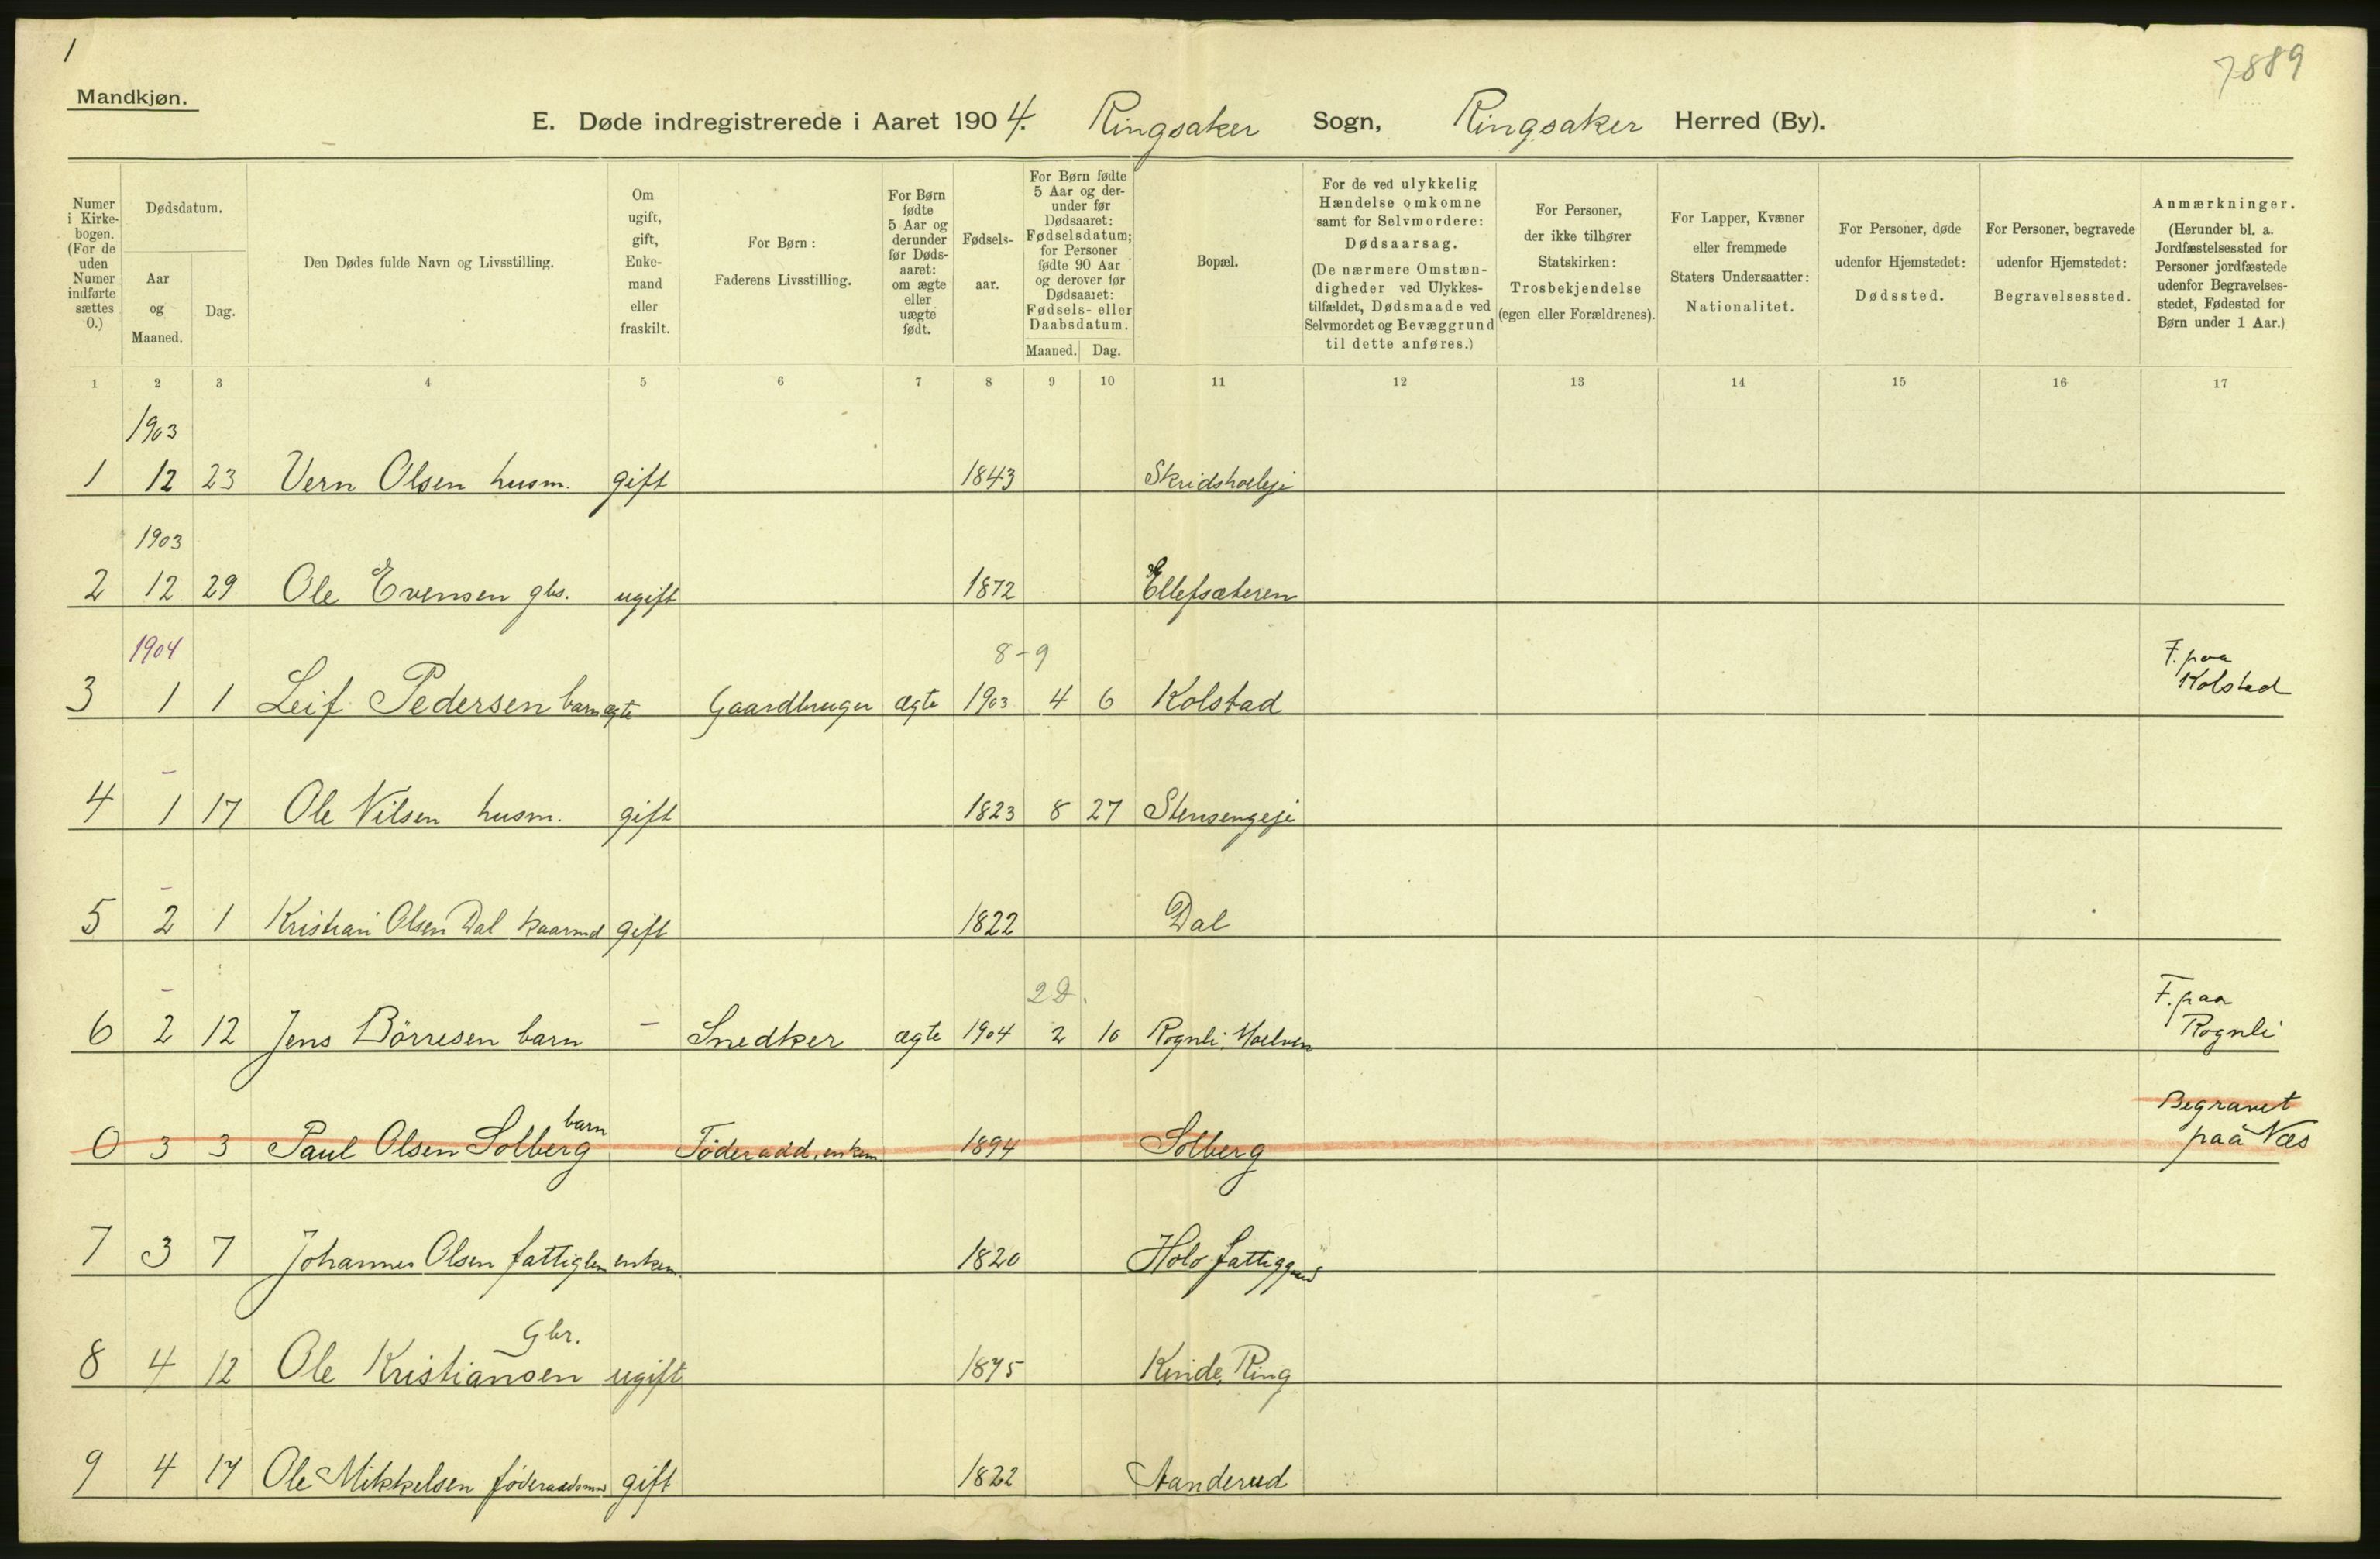 1
7889
Mandkjøn.
E. Døde indregistrerede i Aaret 1904. Ringsaker Sogn, Ringsaker Herred (By).
Numer i Kirke-bogen. (For de uden Numer indførte sættes 0.)
Dødsdatum.
Aar og Maaned.
Dag.
Den Dødes fulde Navn og Livsstilling.
Om ugift, gift, Enke-mand eller fraskilt.
For Børn: Faderens Livsstilling.
For Børn fødte 5 Aar og derunder før Døds-aaret: om ægte eller uægte født.
Fødsels-aar.
For Børn fødte 5 Aar og der-under før Dødsaaret: Fødselsdatum; for Personer fødte 90 Aar og derover før Dødsaaret: Fødsels- eller Daabsdatum.
Maaned. Dag.
Bopæl.
For de ved ulykkelig Hændelse omkomne samt for Selvmordere: Dødsaarsag. (De nærmere Omstæn-digheder ved Ulykkes-tilfældet, Dødsmaade ved Selvmordet og Bevæggrund til dette anføres.)
For Personer, der ikke tilhører Statskirken: Trosbekjendelse (egen eller Forældrenes).
For Lapper, Kvæner eller fremmede Staters Undersaatter: Nationalitet.
For Personer, døde udenfor Hjemstedet: Dødssted.
For Personer, begravede udenfor Hjemstedet: Begravelsessted.
Anmærkninger. (Herunder bl. a. Jordfæstelsessted for Personer jordfæstede udenfor Begravelses-stedet, Fødested for Børn under 1 Aar.)
1 2 3 4 5 6 7 8 9 10 11 12 13 14 15 16 17
1903
1 12 23 Vern Olsen husm. gift 1843
1903
2 12 29 Ole Evensen gbs. ugift 1872 Ellefsæteren
1904 8-9 F. paa
3 1 1 Leif Pedersen barn ægte Gaardbruger ægte 1903 4 6 Kolstad Kolstad
–
4 1 17 Ole Nilsen husm. gift 1823 8 27 Stensengeje
–
5 2 1 Kristian Olsen Dal kaarmd gift 1822 Dal
– 2 D. F. paa
6 2 12 Jens Börresen barn – Snedker ægte 1904 2 10 Rognli, Moelven Rognli
barn Begravet
0 3 3 Paul Olsen Solberg Föderaad, enkem 1894 Solberg paa Næs
7 3 7 Johannes Olsen fattiglem enkem. 1820 Holo fattiggaard
Gbr.
8 4 12 Ole Kristiansen ugift 1875 Kinde, Ring
9 4 17 Ole Mikkelsen föderaadsmd gift 1822 Aanderud